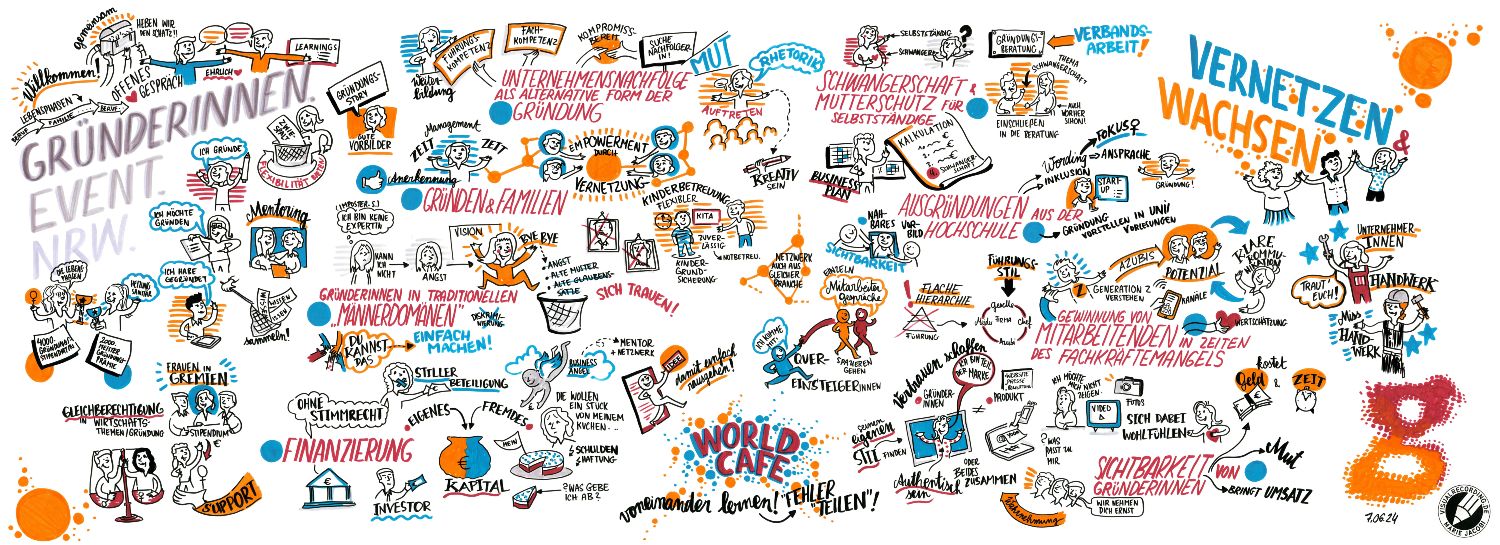 gemeinsam
HEBEN WIR
DEN SCHATZ!!
Willkommen!
OFFENES
GESPRÄCH
EHRLICH
LEARNINGS
LEBENSPHASEN
BERUF
FAMILIE
BERUF
GRÜNDERINNEN.
EVENT.
NRW.
GRÜNDUNGS-
STORY
GUTE
VORBILDER
ICH GRÜNDE
FLEXIBILITÄT
ICH MÖCHTE
GRÜNDEN
Mentoring
ICH HABE
GEGRÜNDET
WISSEN
sammeln!
4000.
GRÜNDUNGS-
STIPENDIATIN
2000.
MEISTER
GRÜNDUNGS-
PRÄMIE
FRAUEN IN
GREMIEN
GLEICHBERECHTIGUNG
IN WIRTSCHAFTS-
THEMEN/GRÜNDUNG
STIPENDIUM
€
SUPPORT
FÜHRUNGS-
KOMPETENZ
Weiter-
bildung
FACH-
KOMPETENZ
KOMPROMISS-
BEREIT
SUCHE
NACHFOLGER-
IN!
MUT
UNTERNEHMENSNACHFOLGE
ALS ALTERNATIVE FORM DER
GRÜNDUNG
RHETORIK
AUFTRETEN
KREATIV
SEIN
Management
ZEIT
ZEIT
Anerkennung
EMPOWERMENT
DURCH
VERNETZUNG
GRÜNDEN & FAMILIEN
KINDERBETREUUNG
FLEXIBLER
KITA
ZUVER-
LÄSSIG
NOTBETREU.
KINDER-
GRUND-
SICHERUNG
(IMPOSTER S.)
ICH BIN KEINE
EXPERTIN
KANN
ICH
NICHT
ANGST
VISION
BYE BYE
ANGST
ALTE MUSTER
ALTE GLAUBENS-
SÄTZE
SICH TRAUEN!
GRÜNDERINNEN IN TRADITIONELLEN
„MÄNNERDOMÄNEN"
DISKRIMI-
NIERUNG
DU
KANNST
DAS
EINFACH
MACHEN!
NETZWERK
AUCH AUS
GLEICHER
BRANCHE
STILLER
BETEILIGUNG
OHNE
STIMMRECHT
BUSINESS
ANGEL
MENTOR
+ NETZWERK
EIGENES
FREMDES
KAPITAL
FINANZIERUNG
€
INVESTOR
DIE WOLLEN
EIN STÜCK
VON MEINEM
KUCHEN...
MEIN
SCHULDEN
HAFTUNG
? WAS GEBE
ICH AB?
damit einfach
rausgehen!
WORLD
CAFE
voneinander lernen! "FEHLER
TEILEN"!
SELBSTSTÄNDIG
SCHWANGER
?
GRÜNDUNGS-
BERATUNG
VERBANDS-
ARBEIT!
SCHWANGERSCHAFT &
MUTTERSCHUTZ FÜR
SELBSTSTÄNDIGE
THEMA
SCHWANGERSCHAFT
AUCH
VORHER
SCHON!
EINSCHLIEßEN
IN DIE BERATUNG
KALKULATION
SCHWANGER-
SCHAFT
BUSINESS
PLAN
FOKUS ♀
Wording
INKLUSION
ANSPRACHE
START-
UP
GRÜNDUNG!
AUSGRÜNDUNGEN AUS DER
HOCHSCHULE
GRÜNDUNG
VORSTELLEN IN UNI/
VORLESUNGEN
NAH-
BARES
VOR-
BILD
SICHTBARKEIT
EINZELN
Mitarbeiter
gespräche
SPAZIEREN
GEHEN
ICH KOMME
MIT!
QUER-
EINSTEIGERINNEN
! FLACHE
HIERARCHIE
FÜHRUNG
FÜHRUNGS-
STIL
Geselle
Chef
Azubi
FIRMA
AZUBIS
POTENZIAL
GENERATION Z
VERSTEHEN
KANÄLE
KLARE
KOMMU-
NIKATION
WERTSCHÄTZUNG
GEWINNUNG VON
MITARBEITENDEN IN ZEITEN
DES FACHKRÄFTEMANGELS
VERNETZEN &
WACHSEN
UNTERNEHMER-
INNEN
TRAUT
EUCH!
HANDWERK
Miss
HAND-
WERK
Vertrauen schaffen
GRÜNDER-
INNEN
ICH BIN TEIL
DER MARKE
PRODUKT
WEBSITE
PRESSE
seinen
eigenen
Stil FINDEN
Authentisch
sein
ODER
BEIDES
ZUSAMMEN
ICH MÖCHTE
MICH NICHT
ZEIGEN
FOTOS
VIDEO
SICH DABEI
WOHLFÜHLEN
? WAS
PASST ZU
MIR
Wahrnehmung
WIR NEHMEN
DICH ERNST
kostet
Geld & ZEIT
SICHTBARKEIT VON
GRÜNDERINNEN
Mut
BRINGT UMSATZ
g
7.06.24
VISUALRECORDING.DE
MARIE JACOBI